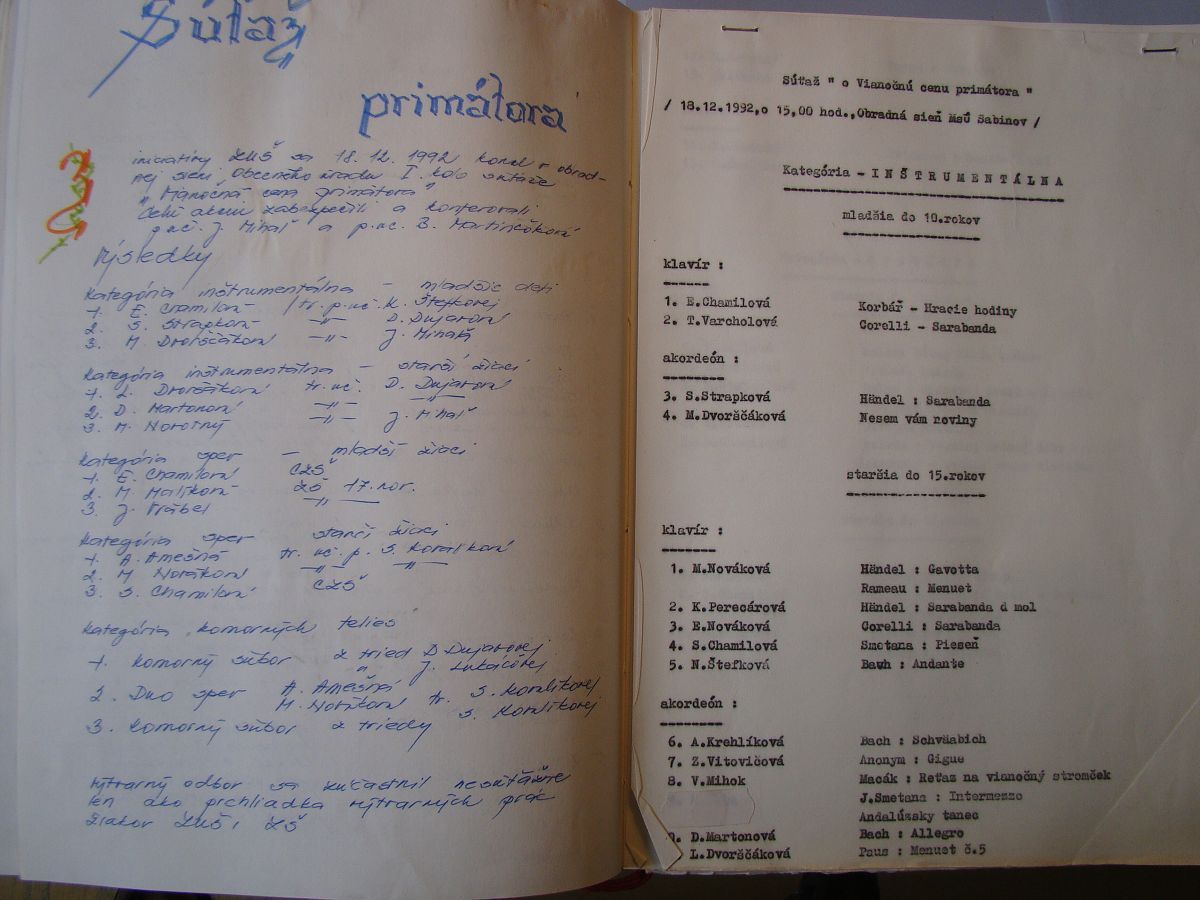 Súťaž
primátora
iniciatívy ĽUŠ sa 18. 12. 1992 konal v obrad-
nej sieni Obecného úradu I. kolo súťaže
"Vianočná cena primátora"
Celú akciu zabezpečili a konferovali
p.uč. J. Mihaľ a p.uč. B. Martinčoková
Výsledky
Kategória inštrumentálna - mladšie deti
1. E. Chamilová tr. p. uč. K. Štefkovej
2. S. Strapková -"- D. Dujavová
3. M. Dvorščáková -"- J. Mihaľ
Kategória inštrumentálna - starší žiaci
1. L. Dvorščáková tr. uč. D. Dujavová
2. D. Martonová -"- -"-
3. M. Novotný -"- J. Mihaľ
Kategória spev - mladší žiaci
1. E. Chamilová CZŠ
2. M. Malíková ZŠ 17. nov.
3. J. Vrábel -"-
Kategória spev starší žiaci
1. A. Amešná tr. uč. p. S. Koralková
2. M. Nováková -"- -"-
3. S. Chamilová CZŠ
Kategória komorných telies
1. Komorný súbor z tried D. Dujavovej
" J. Lukáčovej
2. Duo spev A. Amešná
M. Nováková tr. S. Koralkovej
3. Komorný súbor z triedy S. Koralkovej
Výtvarný odbor sa zúčastnil nesúťažne
len ako prehliadka výtvarných prác
žiakov ĽUŠ i ZŠ
Súťaž " o Vianočnú cenu primátora "
/ 18.12.1992,o 15,00 hod.,Obradná sieň MsÚ Sabinov /
Kategória - INŠTRUMENTÁLNA
mladšia do 10.rokov
klavír :
1. E.Chamilová Korbář - Hracie hodiny
2. T.Varcholová Corelli - Sarabanda
akordeón :
3. S.Strapková Händel : Sarabanda
4. M.Dvorščáková Nesem vám noviny
staršia do 15.rokov
klavír :
1. M.Nováková Händel : Gavotta
Rameau : Menuet
2. K.Perecárová Händel : Sarabanda d mol
3. E.Nováková Corelli : Sarabanda
4. S.Chamilová Smetana : Pieseň
5. N.Štefková Bach : Andante
akordeón :
6. A.Krehlíková Bach : Schväabich
7. Z.Vitovičová Anonym : Gigue
8. V.Mihok Macák : Reťaz na vianočný stromček
J.Smetana : Intermezzo
Andalúzsky tanec
9. D.Martonová Bach : Allegro
L.Dvorščáková Paus : Menuet č.5